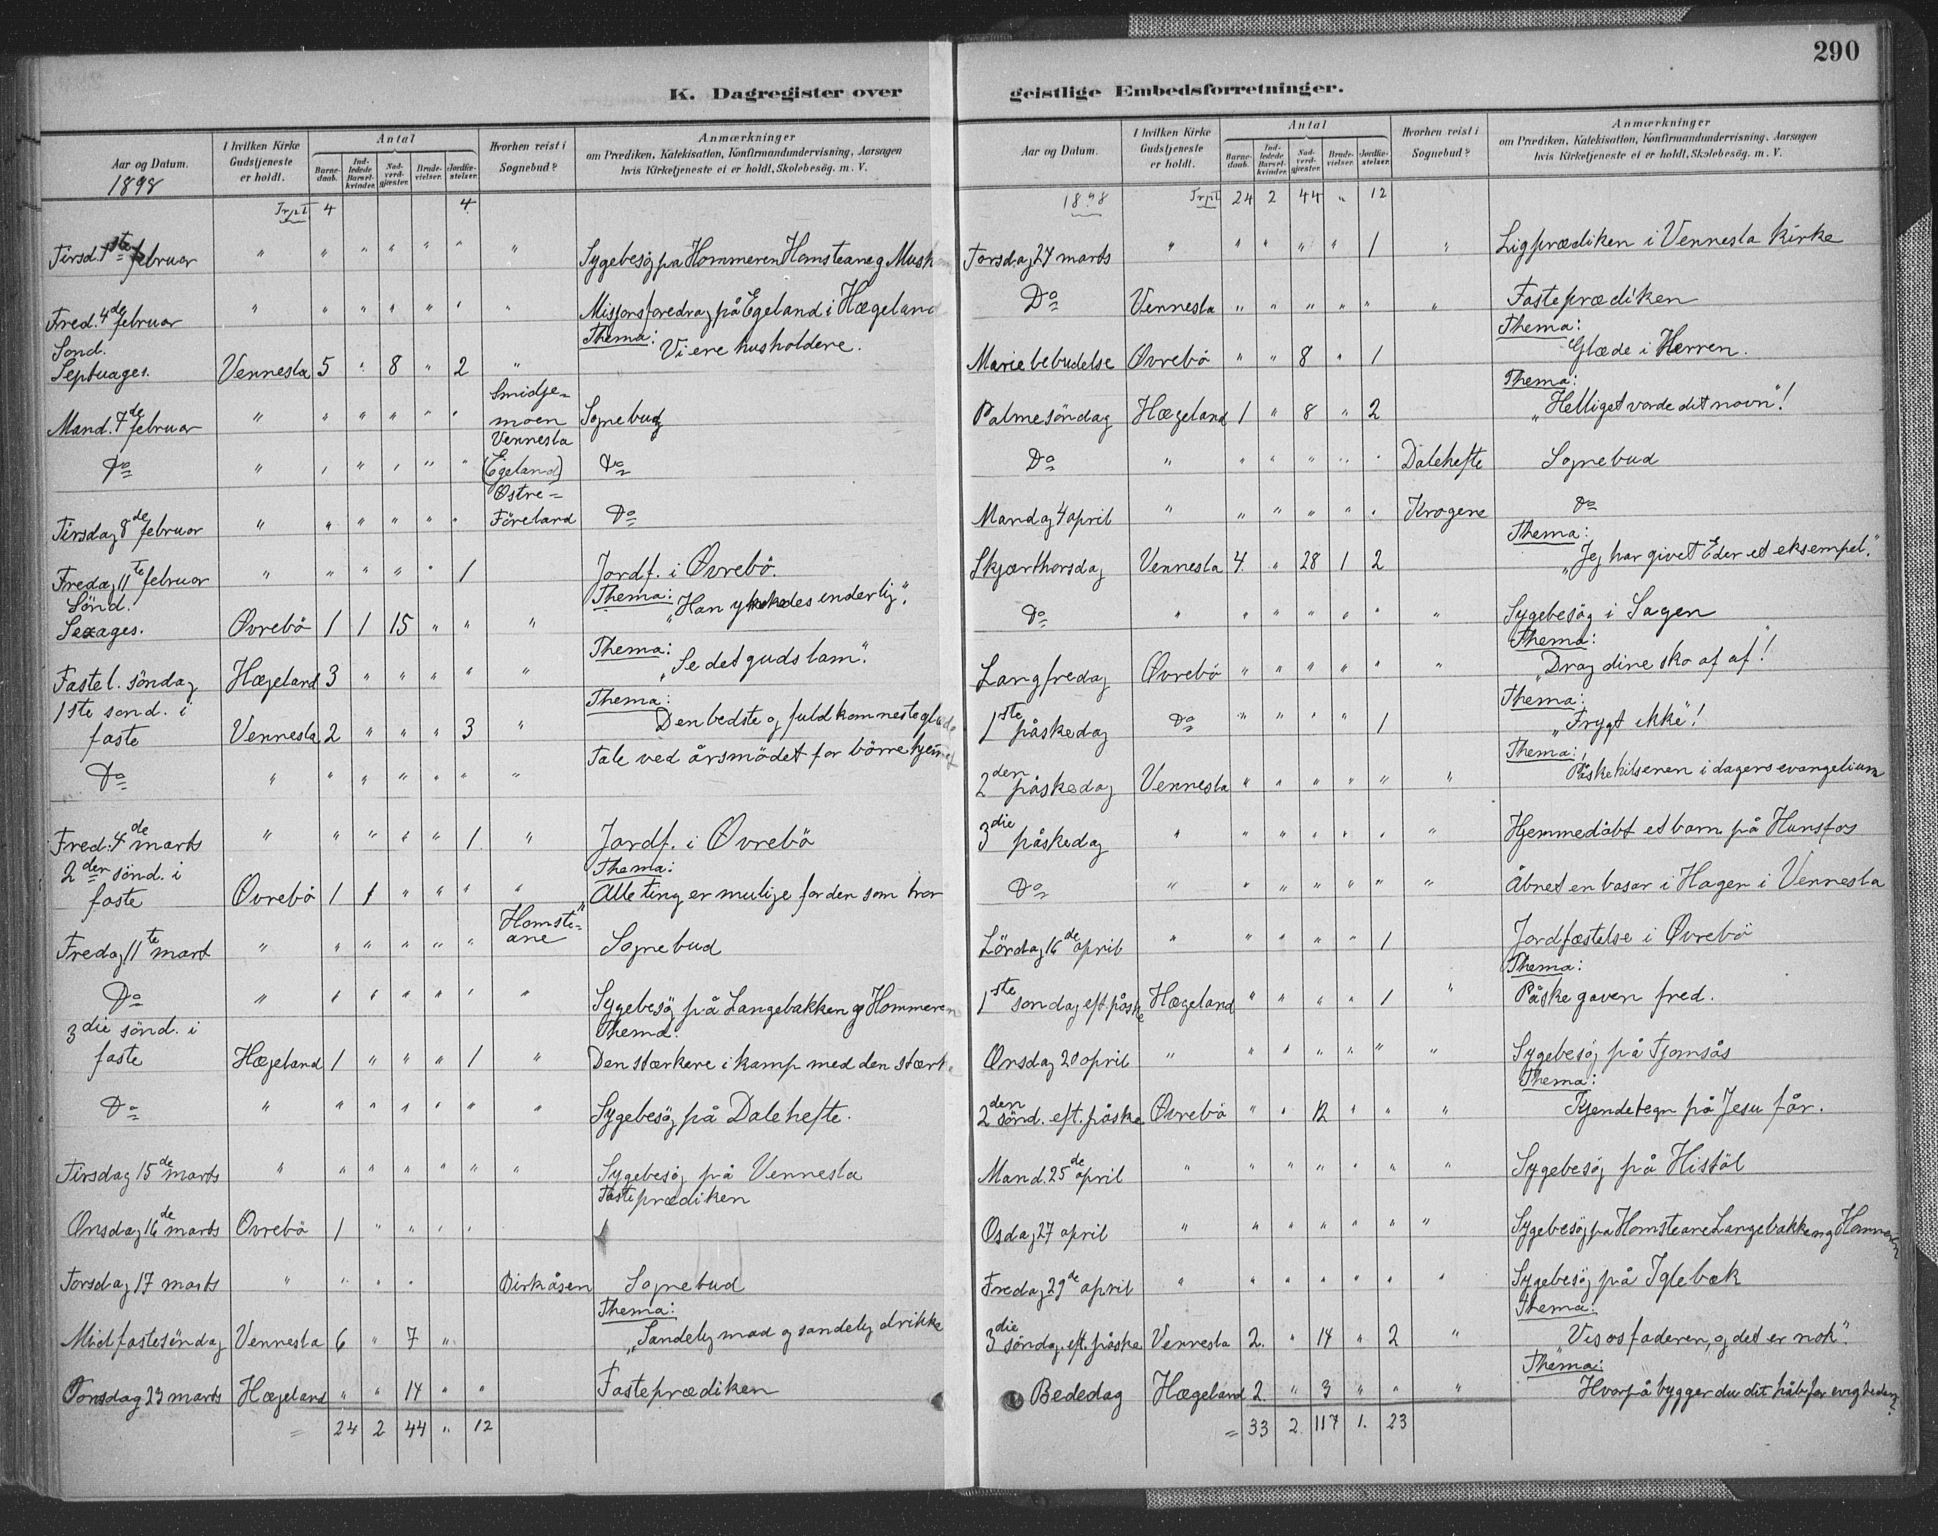 290
K. Dagregister over
geistlige Embedsforretninger.
Aar og Datum. | I hvilken Kirke Gudstjeneste er holdt. | Antal | Barne-daab. | Ind-ledede Barsel-kvinder. | Nad-verd-gjæster. | Brude-vielser. | Jordfæ-stelser. | Hvorhen reist i Sognebud? | Anmærkninger om Prædiken, Katekisation, Konfirmandundervisning, Aarsagen hvis Kirketjeneste ei er holdt, Skolebesög. m. V.
1898 | Trpt | 4 | | | | 4.
Tirsd. 1ste februar | " | " | " | " | " | " | " | Sygebesög på Hommeren Homsteane og
Fred. 4de februar | " | " | " | " | " | " | " | Missonsforedrag på Egeland i Hægeland
Sönd. Septuages. | Vennesla | 5 | " | 8 | " | 2 | " | Thema: Vi ere husholdere.
Mand. 7de februar | " | " | " | " | " | " | Smidje=moen Vennesla | Sognebud
Do | " | " | " | " | " | " | (Egeland) | Do
Tirsdag 8de februar | " | " | " | " | " | " | Östre= Föreland | Do
Fredag 11te februar | " | " | " | " | " | 1 | | Jordf. i Øvrebö.
Sönd. Sexages. | Øvrebö | 1 | 1 | 15 | " | " | " | Thema: "Han ynkedes inderlig".
Fastel. söndag | Hægeland | 3 | " | " | " | " | " | Thema: "Se det guds lam".
1ste sond. i faste | Vennesla | 2 | " | " | " | 3 | " | Thema: Den bedste og fuldkomneste glæde
Do | " | " | " | " | " | " | " | Tale ved årsmödet for börnehjemmet
Fred. 4de marts | " | " | " | " | " | 1. | " | Jordf. i Øvrebö
2den sönd. i faste | Øvrebö | 1 | 1 | " | " | " | " | Thema: Alle ting er mulige for den som tror
Fredag 11te mart | " | " | " | " | " | " | Homste=ane | Sognebud
Do | " | " | " | " | " | " | " | Sygebesög på Langebakken og Hommeren
3die sönd. i faste | Hægeland | 1 | " | " | " | 1 | " | Thema. Den stærkere i kamp med den stærk.
Do | " | " | " | " | " | " | " | Sygebesög på Dalehefte.
Tirsdag 15de marts | " | " | " | " | " | " | " | Sygebesög på Vennesla
Onsdag 16de marts | Øvrebö | 1 | " | " | " | " | | Fasteprædiken
Torsdag 17 marts | " | " | " | " | | | Birkåsen | Sognebud
Midfastesöndag | Vennesla | 6 | " | 7 | " | | | Thema: "Sandelig mad og sandelig drikke
Onsdag 23 marts | Hægeland | " | " | 14 | " | " | | Fasteprædiken
= | 24 | 2 | 44 | " | 12
Aar og Datum. | I hvilken Kirke Gudstjeneste er holdt. | Antal | Barne-daab. | Ind-ledede Barsel-kvinder. | Nad-verd-gjæster. | Brude-vielser. | Jordfæ-stelser. | Hvorhen reist i Sognebud? | Anmærkninger om Prædiken, Katekisation, Konfirmandundervisning, Aarsagen hvis Kirketjeneste ei er holdt, Skolebesög. m. V.
1898 | Trpt | 24 | 2 | 44 | " | 12
Torsdag 24 marts | " | " | " | " | " | 1 | " | Ligprædiken i Vennesla kirke
Do | Vennesla | " | " | " | " | " | " | Fasteprædiken
Marie bebudelse | Øvrebö | " | " | 8 | " | 1 | | Thema: Glæde i Herren.
Palmesöndag | Hægeland | 1 | " | 8 | " | 2 | | Thema: "Helliget vorde dit navn"!
Do | " | " | " | " | " | " | Dalehefte | Sognebud
Mandag 4 april | " | " | " | " | " | " | Krogene | Do
Skjærthorsdag | Vennesla | 4. | " | 28 | 1 | 2 | | Thema: "Jeg har givet Eder et eksempel."
Do | " | " | " | " | " | " | " | Sygebesög i Sagen
Langfredag | Øvrebö | " | " | " | " | " | " | Thema: "Drag dine sko af af"!
1ste påskedag | Do | " | " | " | " | 1 | | Thema: "Frygt ikke"!
2den påskedag | Vennesla | " | " | " | " | " | " | Thema: Påskehilsenen i dagens evangelium
3die påskedag | " | " | " | " | " | " | " | Hjemmedöbt et barn på Hunsfos
Do | " | " | " | " | " | " | " | Åbnet en basar i Hagen i Vennesla
Lördag 16de april | " | " | " | " | " | 1 | | Jordfæstelse i Øvrebö
1ste söndag eft påske | Hægeland | " | " | " | " | 1 | " | Thema: Påskegaven fred.
Onsdag 20 april | " | " | " | " | " | " | " | Sygebesög på Tjomsås
2den sönd. eft. påske | Øvrebö | " | " | 12 | " | " | " | Thema: Kjendetegn på Jesu får.
Mand. 25de april | " | " | " | " | " | " | " | Sygebesög på Histöl
Osdag 27 april | " | " | " | " | " | " | " | Sygebesög på Homsteane Langebakken og Hommeren
Fredag 29de april | " | " | " | " | " | " | " | Sygebesög på Iglebæk
3die söndag. eft. påske | Vennesla | 2. | " | 14 | " | 2 | " | Thema: Vis os faderen, og det er nok".
Bededag | Hægeland | 2. | " | 3 | " | " | " | Thema: Hvorpå bygger du dit håb for evigheden?
= | 33 | 2. | 117 | 1. | 23